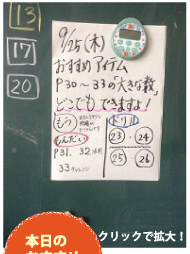 13
17
20
9/25(木)
おすすめ アイテム
P30~33の「大きな数」
どこでも できますよ!
もっ
ドリル
㉓・㉔
もんだい
P31、32
33チャレンジ
㉕ ㉖
本日の
クリックで拡大!